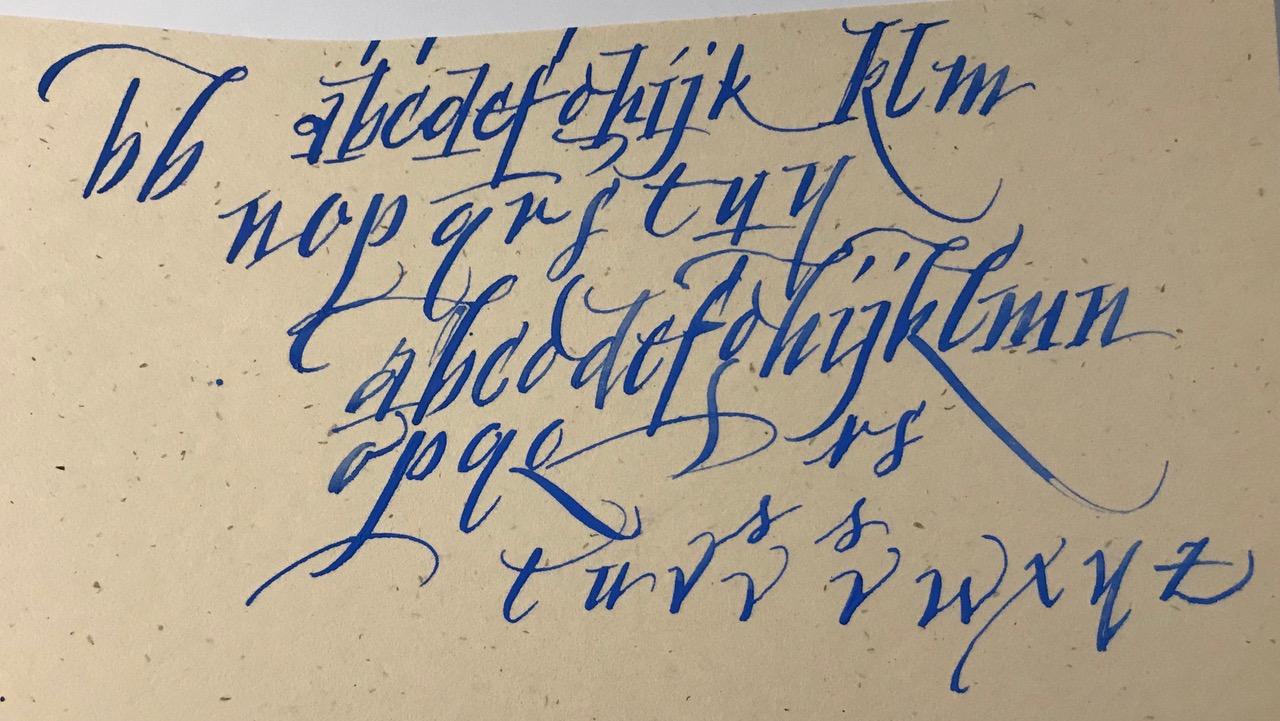 bb abcdefghijk klm
nopqrs tyy
abcddefghijklmn
opqo rs
s s
tuvv v wxyz